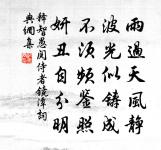 雨過天風靜
波光似鑄成
不須頻鑒照
妍丑自分明
釋智愚聞侍者鏡潭詞
典網集